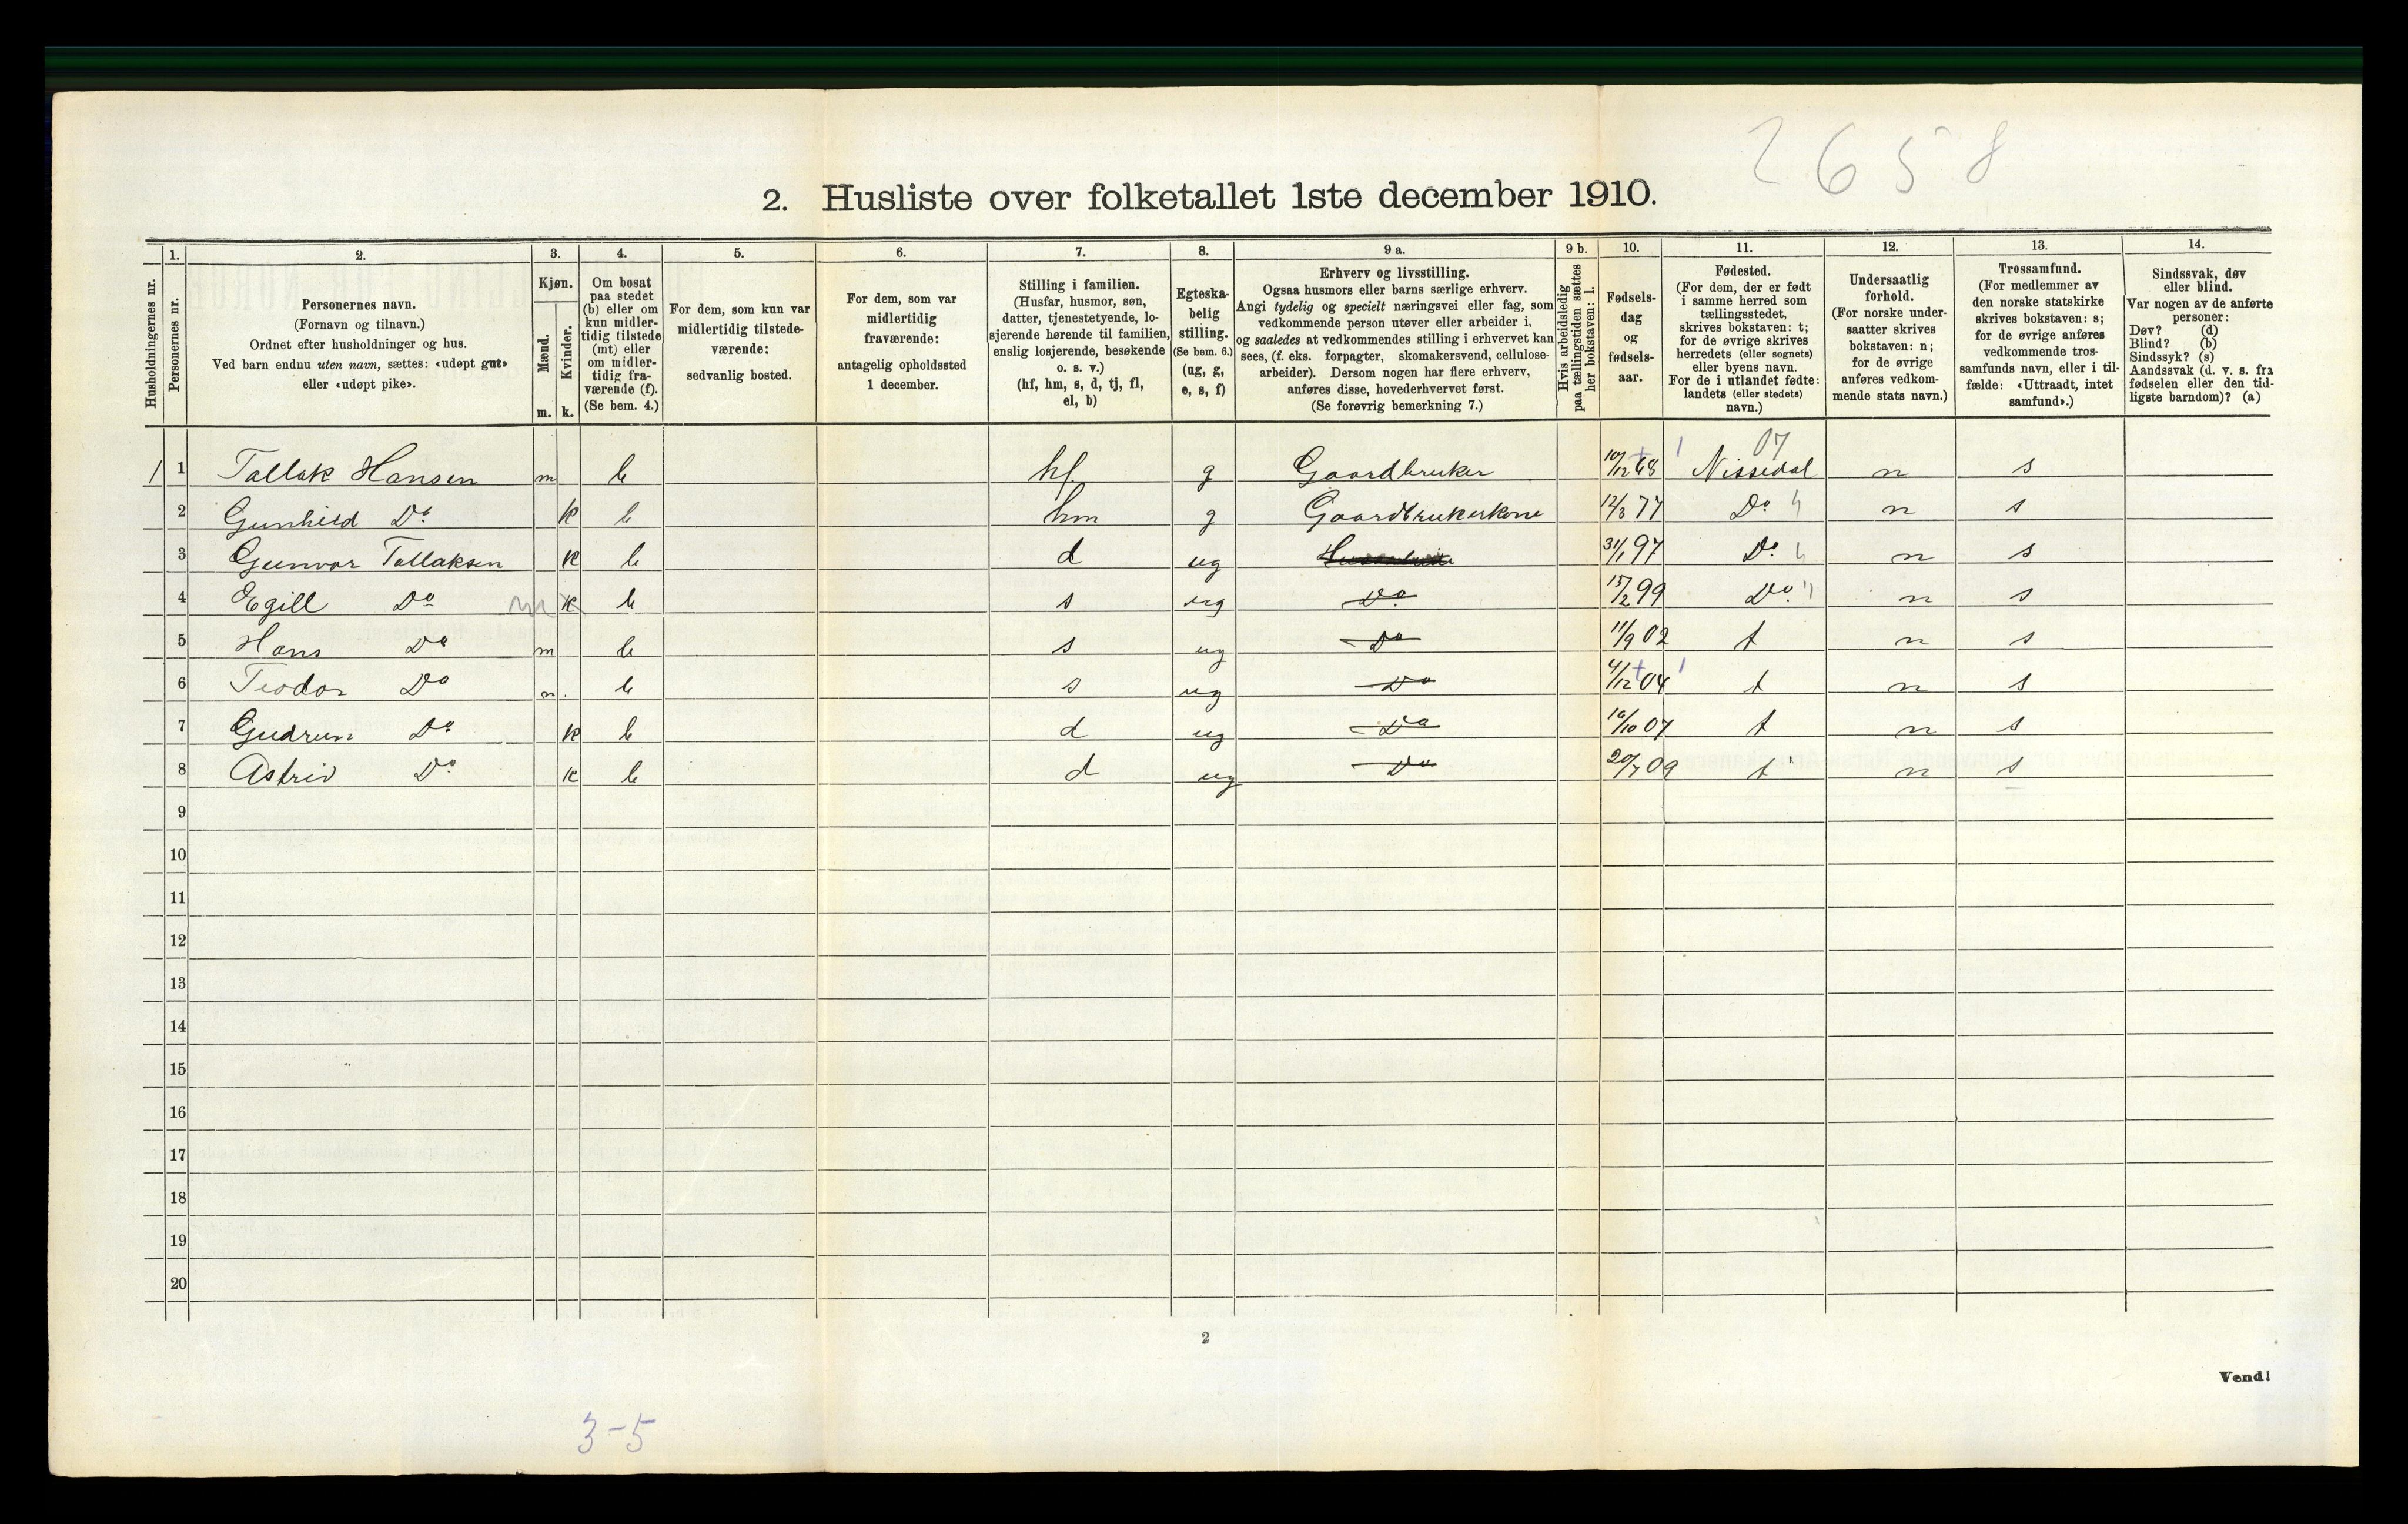 2658
2. Husliste over folketallet 1ste december 1910.
Husholdningernes nr.
1. Personernes nr.
2. Personernes navn. (Fornavn og tilnavn.) Ordnet efter husholdninger og hus. Ved barn endnu uten navn, sættes: «udøpt gut» eller «udøpt pike».
3. Kjøn. Mænd. m. Kvinder. k.
4. Om bosat paa stedet (b) eller om kun midlertidig tilstede (mt) eller om midlertidig fraværende (f). (Se bem. 4.)
5. For dem, som kun var midlertidig tilstedeværende: sedvanlig bosted.
6. For dem, som var midlertidig fraværende: antagelig opholdssted 1 december.
7. Stilling i familien. (Husfar, husmor, søn, datter, tjenestetyende, losjerende hørende til familien, enslig losjerende, besøkende o. s. v.) (hf, hm, s, d, tj, fl, el, b)
8. Egteskabelig stilling. (Se bem. 6.) (ug, g, e, s, f)
9 a. Erhverv og livsstilling. Ogsaa husmors eller barns særlige erhverv. Angi tydelig og specielt næringsvei eller fag, som vedkommende person utøver eller arbeider i, og saaledes at vedkommendes stilling i erhvervet kan sees, (f. eks. forpagter, skomakersvend, cellulosearbeider). Dersom nogen har flere erhverv, anføres disse, hovederhvervet først. (Se forøvrig bemerkning 7.)
9 b. Hvis arbeidsledig paa tællingstiden sættes her bokstaven: l.
10. Fødselsdag og fødselsaar.
11. Fødested. (For dem, der er født i samme herred som tællingsstedet, skrives bokstaven: t; for de øvrige skrives herredets (eller sognets) eller byens navn. For de i utlandet fødte: landets (eller stedets) navn.)
12. Undersaatlig forhold. (For norske undersaatter skrives bokstaven: n; for de øvrige anføres vedkommende stats navn.)
13. Trossamfund. (For medlemmer av den norske statskirke skrives bokstaven: s; for de øvrige anføres vedkommende trossamfunds navn, eller i tilfælde: «Uttraadt, intet samfund».)
14. Sindssvak, døv eller blind. Var nogen av de anførte personer: Døv? (d) Blind? (b) Sindssyk? (s) Aandssvak (d. v. s. fra fødselen eller den tidligste barndom)? (a)
07
1 1 Tallak Hansen m b hf g Gaardbruker 10/12 68 Nissedal n s
2 Gunhild Do k b hm g Gaardbrukerkone 12/3 77 Do n s
3 Gunvor Tallaksen k b d ug 31/1 97 Do n s
4 Egill Do m k b s ug Do 15/2 99 Do n s
5 Hans Do m b s ug Do 11/9 02 t n s
6 Teodor Do m b s ug Do 4/12 04 t n s
7 Gudrun Do k b d ug Do 16/10 07 t n s
8 Astrid Do k b d ug Do 20/7 09 t n s
9
10
11
12
13
14
15
16
17
18
19
20
2
Vend!
3-5